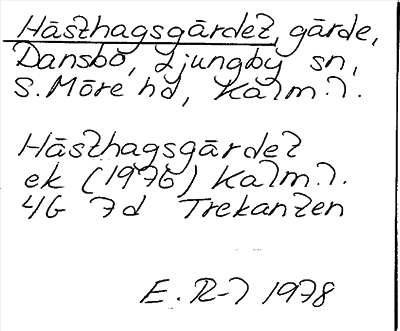 Hästhagsgärdet, gärde,
Dansbo, Ljungby sn,
S. Möre hd, Kalm. l.
Hästhagsgärdet
ek (1976) Kalm. l.
4G 7d Trekanten
E. R-l 1978